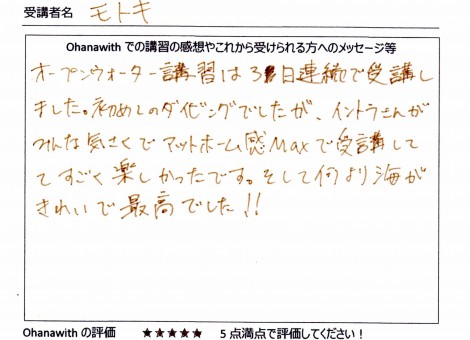 受講者名 モトキ
Ohanawith での講習の感想やこれから受けられる方へのメッセージ等
オープンウォーター講習は3日連続で受講し
ました。初めてのダイビングでしたが、イントラさんが
みんな気さくでアットホーム感Maxで受講して
てすごく楽しかったです。そして何より海が
きれいで最高でした!!
Ohanawith の評価 ★★★★★ 5点満点で評価してください！